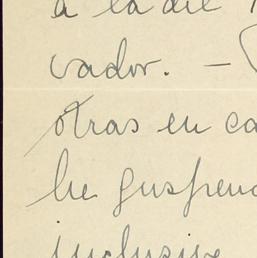 a la del
vador. —
otras en ca
he suspend
inclusive